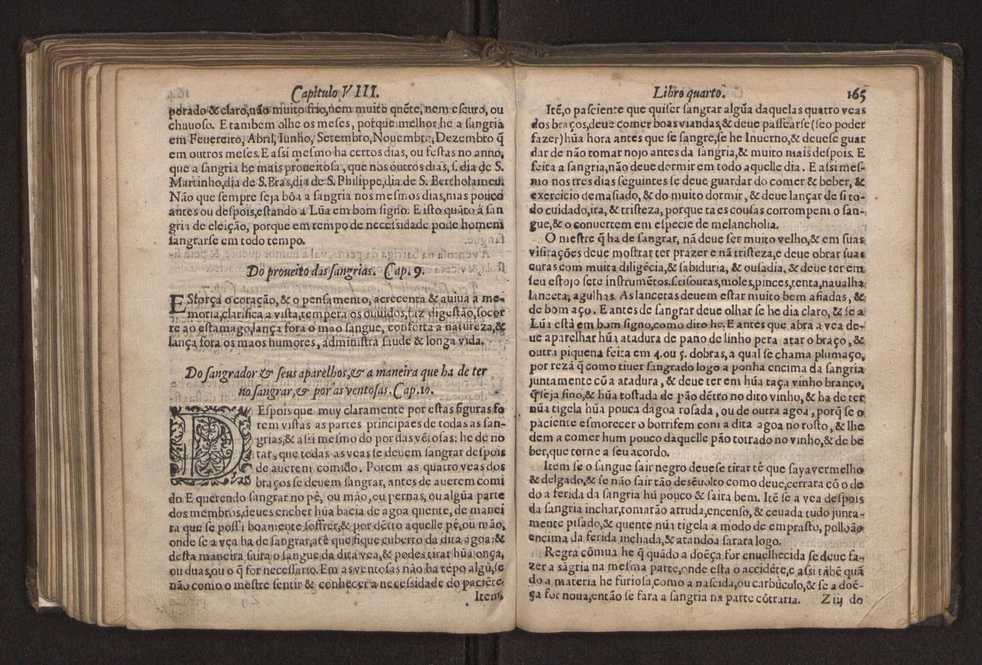 Capitulo VIII.
perado & claro, não muito frio, nem muito quēte, nem escuro, ou
chuuoso. E tambem olhe os meses, porque melhor he a sangria
em Feuereiro, Abril, Iunho, Setembro, Nouembro, Dezembro q̃
em outros meses. E assi mesmo ha certos dias, ou festas no anno,
que a sangria he mais proueitosa, que nos outros dias, s. dia de S.
Martinho, dia de S. Bras, dia de S. Philippe, dia de S. Bertholameu.
Não que sempre seja bõa a sangria nos mesmos dias, mas pouco
antes ou despois, estando a Lũa em bom signo. E isto quãto á san
gria de eleição, porque em tempo de necessidade pode homem
sangrarse em todo tempo.
Do proueito das sangrias. Cap. 9.
ESforça o coração, & o pensamento, acrecenta & auiua a me-
moria, clarifica a vista, tempera os ouuidos, faz digestão, socor
re ao estamago, lança fora o mao sangue, conforta a natureza, &
lança fora os maos humores, administra saude & longa vida.
Do sangrador & seus aparelhos, & a maneira que ha de ter
no sangrar, & por as ventosas. Cap. 10.
DEspois que muy claramente por estas figuras fo
rem vistas as partes principaes de todas as san-
grias, & assi mesmo do por das vētosas: he de no
tar, que todas as veas se deuem sangrar despois
de auerem comido. Porem as quatro veas dos
braços se deuem sangrar, antes de auerem comi
do. E querendo sangrar no pê, ou mão, ou pernas, ou algũa parte
dos membros, deues encher hũa bacia de agoa quente, de manei
ra que se possa boamente soffrer, & por dētro aquelle pê, ou mão,
onde se a vea ha de sangrar, atê que fique cuberto da dita agoa: &
desta maneira saira o sangue da dita vea, & podes tirar hũa onça,
ou duas, ou o q̃ for necessario. Em as vētosas não ha tēpo algũ, se
não como o mestre sentir & conhecer a necessidade do paciēte.
Item
Libro quarto. 165
Itē, o pasciente que quiser sangrar algũa daquelas quatro veas
dos braços, deue comer boas viandas, & deue passearse (se o poder
fazer) hũa hora antes que se sangre, se he Inuerno, & deuese guar
dar de não tomar nojo antes da sangria, & muito mais despois. E
feita a sangria, não deue dormir em todo aquelle dia. E assi mes-
mo nos tres dias seguintes se deue guardar do comer & beber, &
exercicio demasiado, & do muito dormir, & deue lançar de si to-
do cuidado, ira, & tristeza, porque taes cousas corrompem o san-
gue, & o conuertem em especie de melancholia.
O mestre q̃ ha de sangrar, nã deue ser muito velho, & em suas
visitações deue mostrar ter prazer e nã tristeza, e deue obrar suas
curas com muita diligēcia, & sabiduria, & ousadia, & deue ter em
seu estojo sete instrumētos. s. tisouras, moles, pinces, tenta, naualha
lanceta, agulhas. As lancetas deuem estar muito bem afiadas, &
de bom aço. E antes de sangrar deue olhar se he dia claro, & se a
Lũa está em bom signo, como dito he. E antes que abra a vea de-
ue aparelhar hũa atadura de pano de linho pera atar o braço, &
outra piquena feita em 4. ou 5. dobras, a qual se chama plumaço,
por rezã q̃ como tiuer sangrado logo a ponha encima da sangria
juntamente cõ a atadura, & deue ter em hũa taça vinho branco,
q̃ seja fino, & hũa tostada de pão dētro no dito vinho, & ha de ter
nũa tigela hũa pouca dagoa rosada, ou de outra agoa, porq̃ se o
paciente esmorecer o borrifem com a dita agoa no rosto, & lhe
dem a comer hum pouco daquelle pão torrado no vinho, & de be
ber, que torne a seu acordo.
Item se o sangue sair negro deuese tirar tê que saya vermelho
& delgado, & se não sair tão desēuolto como deue, cerrara cõ o de
do a ferida da sangria hũ pouco & saira bem. Itē se a vea despois
da sangria inchar, tomarão arruda, encenso, & ceuada tudo junta-
mente pisado, & quente nũa tigela a modo de emprasto, pollo ão
encima da ferida inchada, & atandoa sarara logo.
Regra cõmua he q̃ quãdo a doēça for enuelhecida se deue fa-
zer a sãgria na mesma parte, onde esta o accidēte, e assi tãbē quã
do a materia he furiosa, como a nascida, ou carbũculo, & se a doē-
ça for noua, então se fara a sangria na parte cõtraria. Z iij do